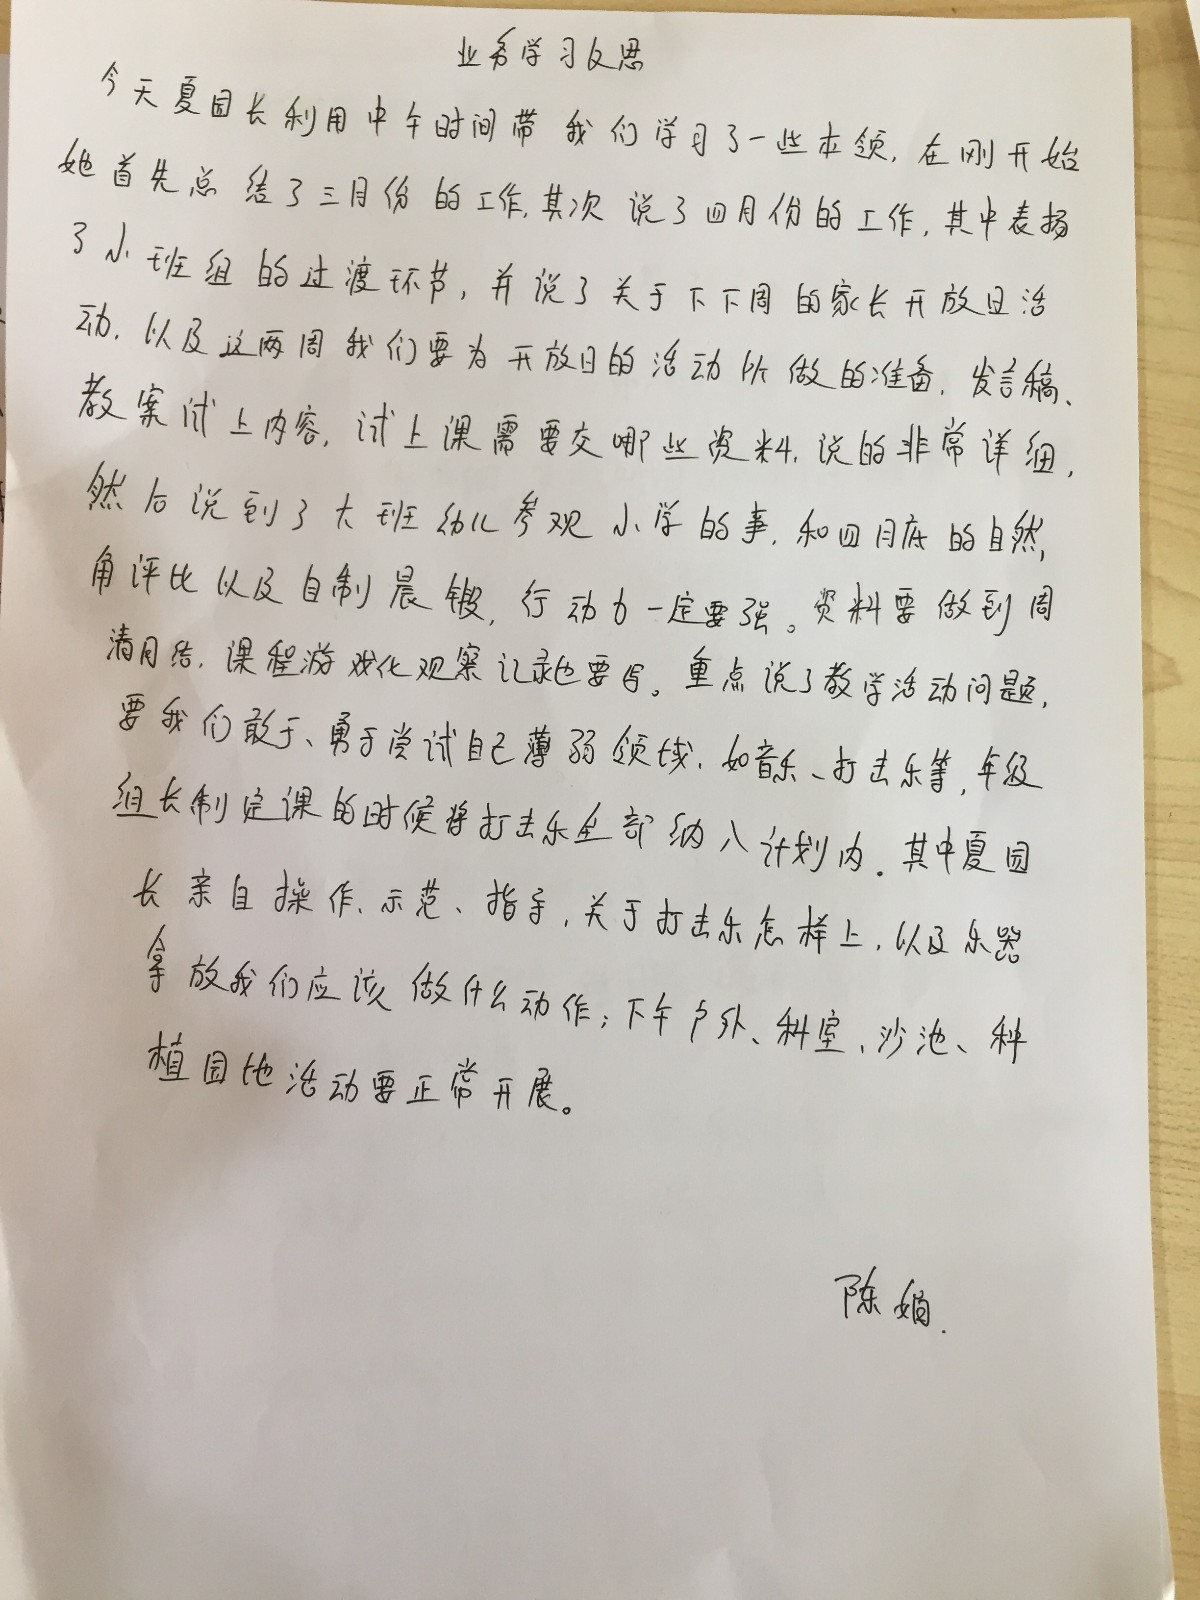 业务学习反思
今天夏园长利用中午时间带我们学习了一些本领,在刚开始
她首先总结了三月份的工作,其次说了四月份的工作,其中表扬
了小班组的过渡环节,并说了关于下下周的家长开放日活
动,以及这两周我们要为开放日的活动所做的准备,发言稿、
教案试上内容,试上课需要交哪些资料,说的非常详细,
然后说到了大班幼儿参观小学的事,和四月底的自然,
角评比以及自制晨锻,行动力一定要强。资料要做到周
清月结,课程游戏化观察记录也要写。重点说了教学活动问题,
要我们敢于、勇于尝试自己薄弱领域,如音乐、打击乐等,年级
组长制定课的时候将打击乐全部纳入计划内。其中夏园
长亲自操作、示范、指导,关于打击乐怎样上,以及乐器
拿放我们应该做什么动作;下午户外、科室、沙池、种
植园地活动要正常开展。
陈娟.